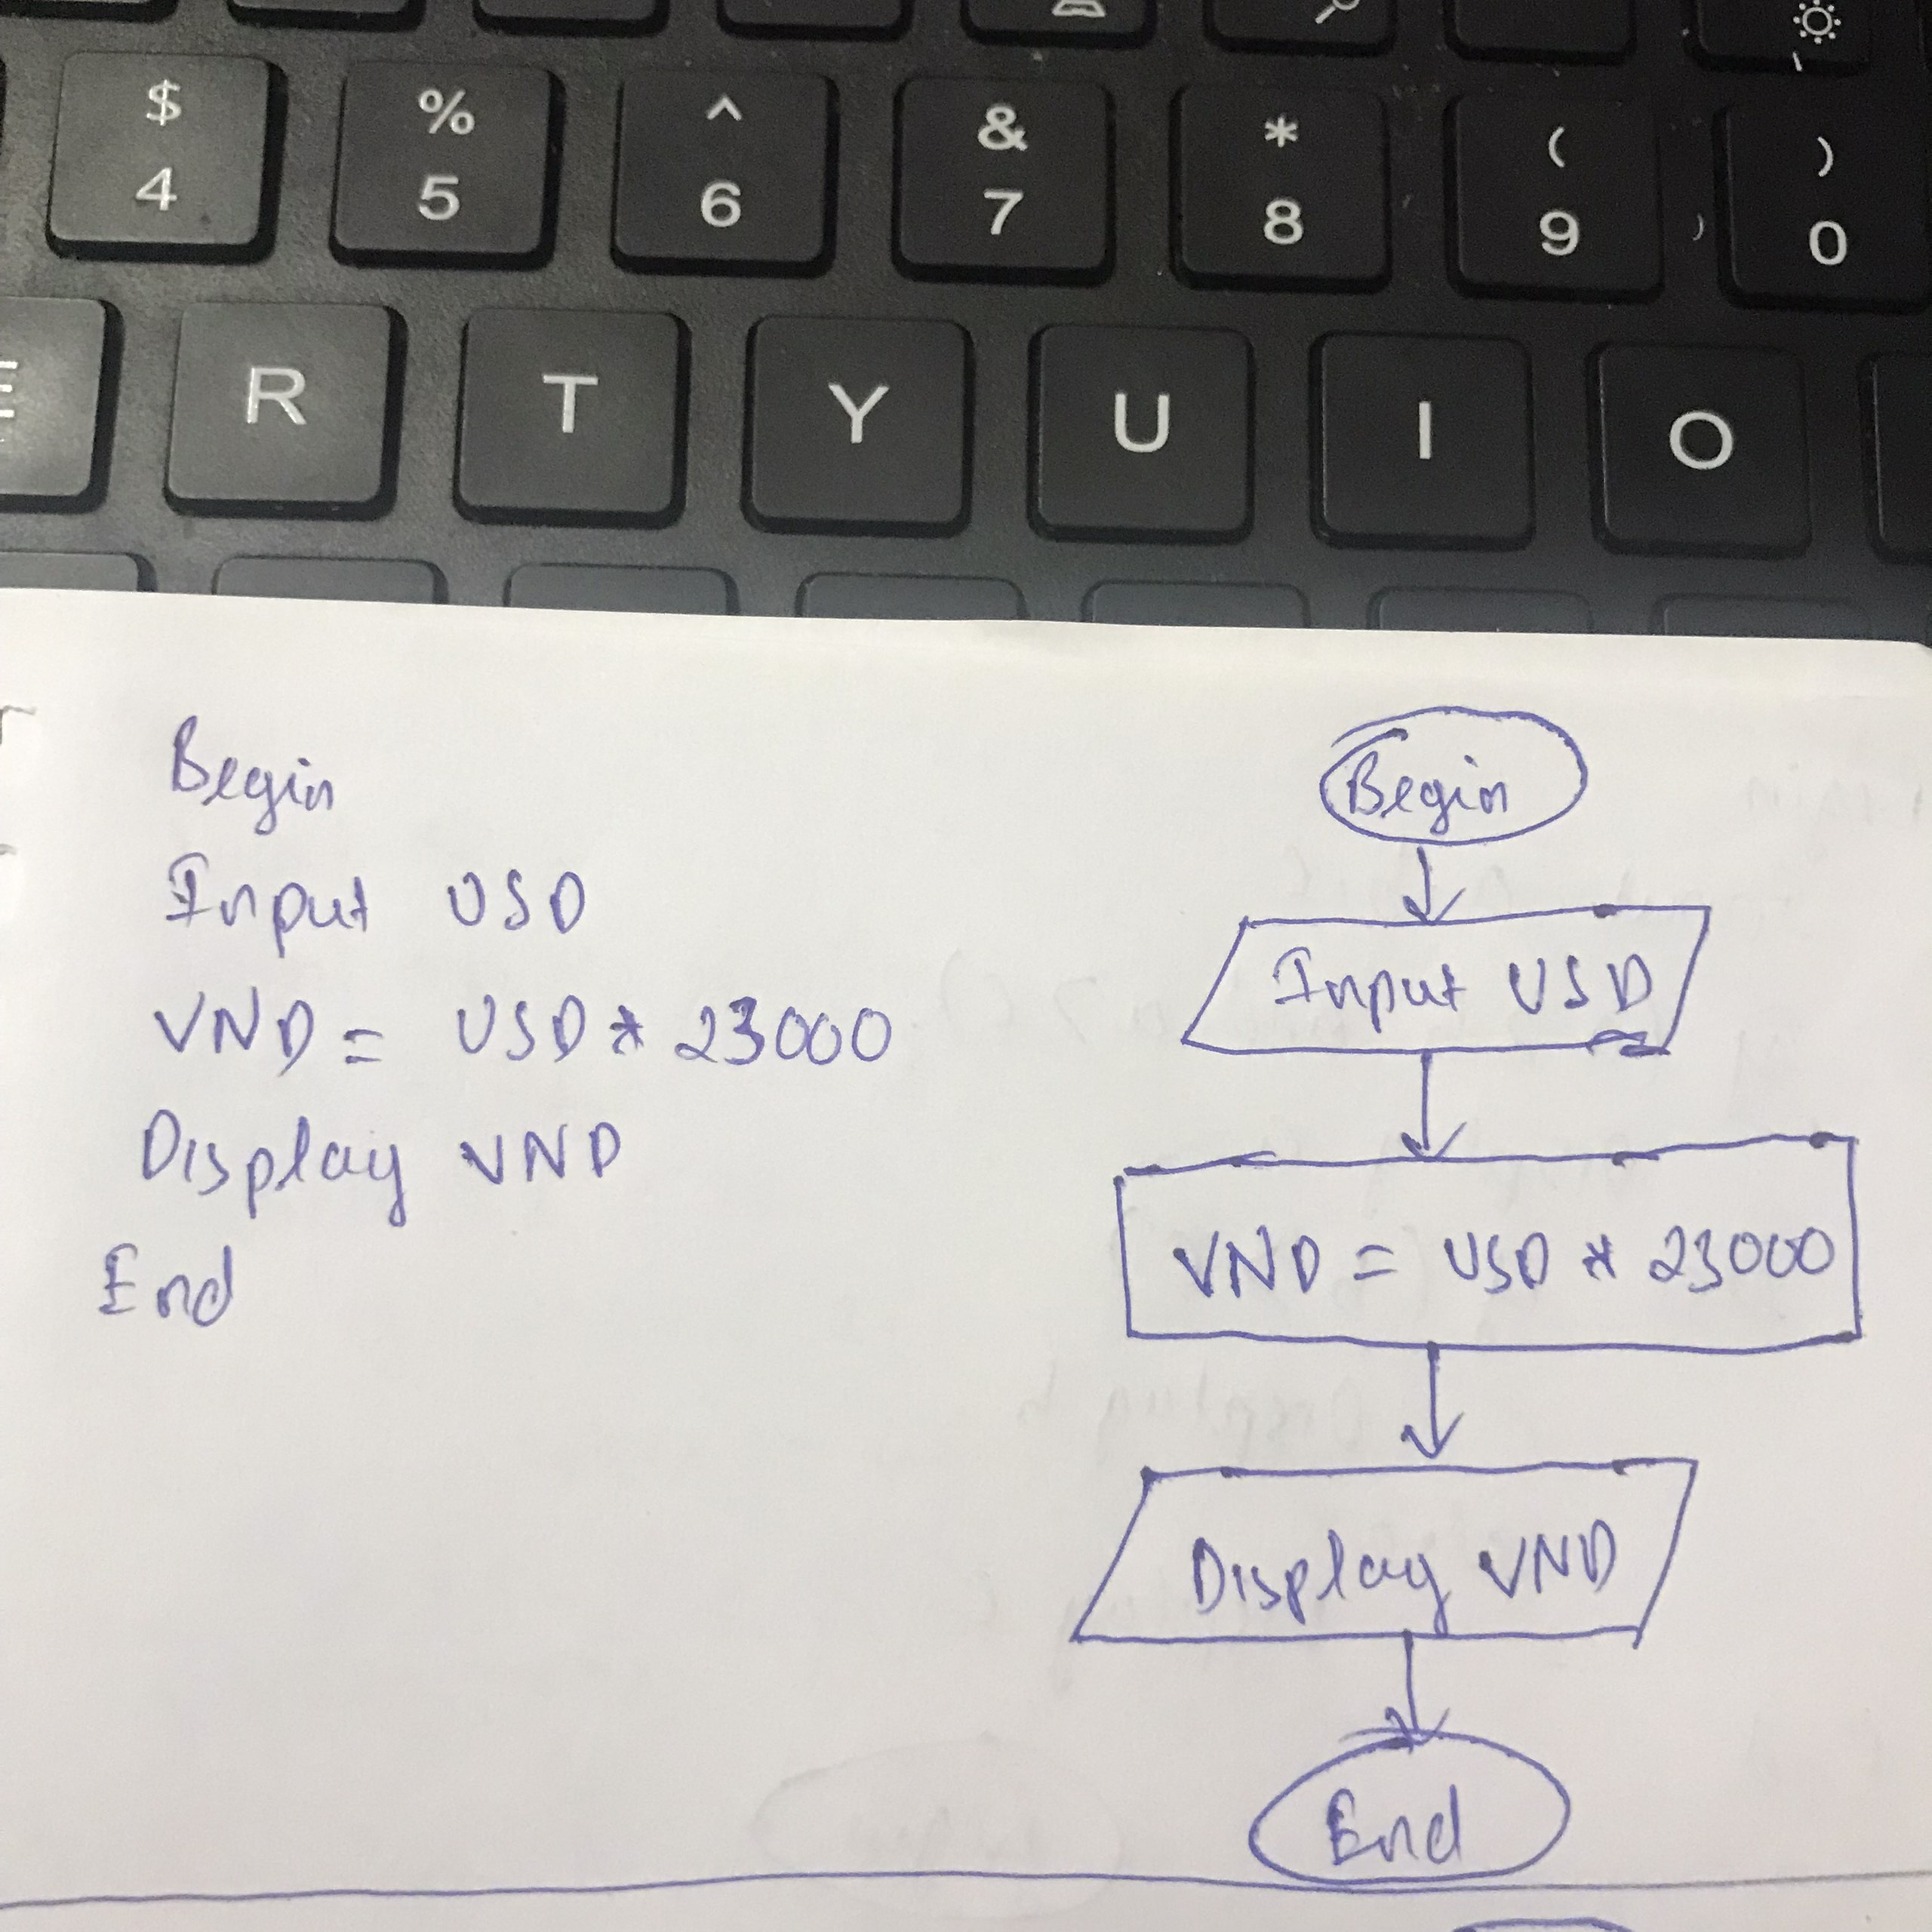 $ % ^ & * ( )
4 5 6 7 8 9 0
E R T Y U I O
Begin
Input USD
VND = USD * 23000
Display VND
End
Begin
Input USD
VND = USD * 23000
Display VND
End